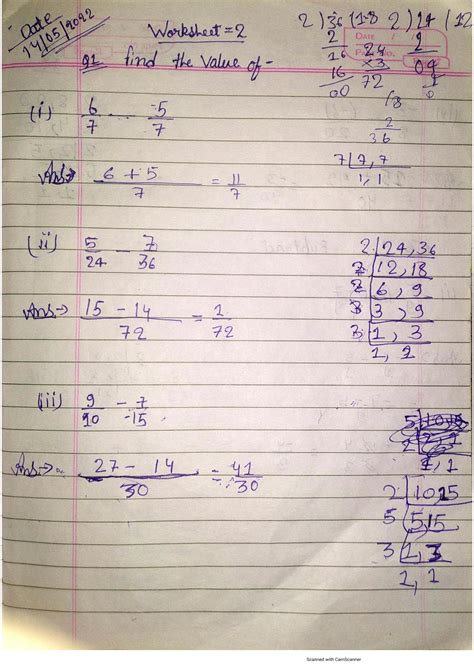 Date
14/05/2022
Worksheet = 2
Q1 find the value of -
2 ) 36 ( 18
2
16
16
00
24
×3
72
2 ) 24 ( 12
2
04
0
DATE
18
2
36
7 | 7, 7
1, 1
(i) 6/7 - -5/7
Ans→ 6 + 5 / 7 = 11/7
(ii) 5/24 - 7/36
Ans→ 15 - 14 / 72 = 1/72
2 | 24, 36
2 | 12, 18
2 | 6, 9
3 | 3, 9
3 | 1, 3
1, 1
(iii) 9/10 - 7/-15
Ans→ 27 - 14 / 30 = 41/30
1, 1
2 | 10, 15
5 | 5, 15
3 | 1, 3
1, 1
Scanned with CamScanner